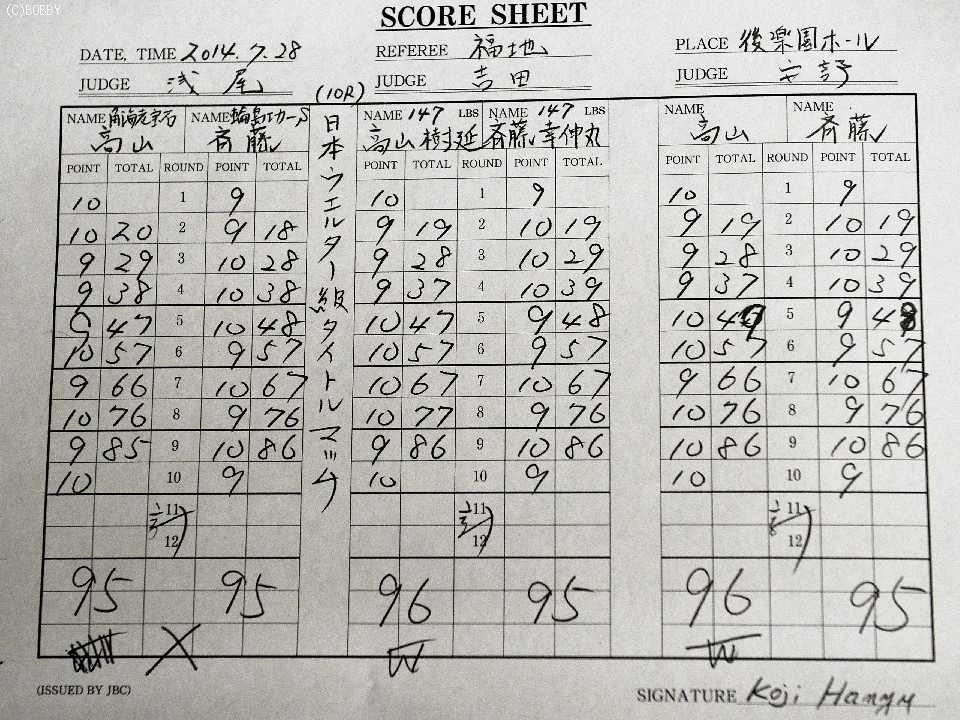 (C)BOBBY
SCORE SHEET
DATE, TIME 2014.7.28 REFEREE 福地 PLACE 後楽園ホール
JUDGE 浅尾 JUDGE 吉田 JUDGE
(10R)
日本ウエルター級タイトルマッチ
NAME 角海老宝石 NAME 輪島エカーS NAME 147 LBS NAME 147 LBS NAME NAME
高山 斉藤 高山樹延 斉藤幸伸丸 高山 斉藤
POINT TOTAL ROUND POINT TOTAL POINT TOTAL ROUND POINT TOTAL POINT TOTAL ROUND POINT TOTAL
10 1 9 10 1 9 10 1 9
10 20 2 9 18 9 19 2 10 19 9 19 2 10 19
9 29 3 10 28 9 28 3 10 29 9 28 3 10 29
9 38 4 10 38 9 37 4 10 39 9 37 4 10 39
9 47 5 10 48 10 47 5 9 48 10 5 9 48
10 57 6 9 57 10 57 6 9 57 10 57 6 9 57
9 66 7 10 67 10 67 7 10 67 9 66 7 10 67
10 76 8 9 76 10 77 8 9 76 10 76 8 9 76
9 85 9 10 86 9 86 9 10 86 10 86 9 10 86
10 10 9 10 10 9 10 10 9
11 11 11
12 12 12
95 95 96 95 96 95
X W W
(ISSUED BY JBC) SIGNATURE Koji